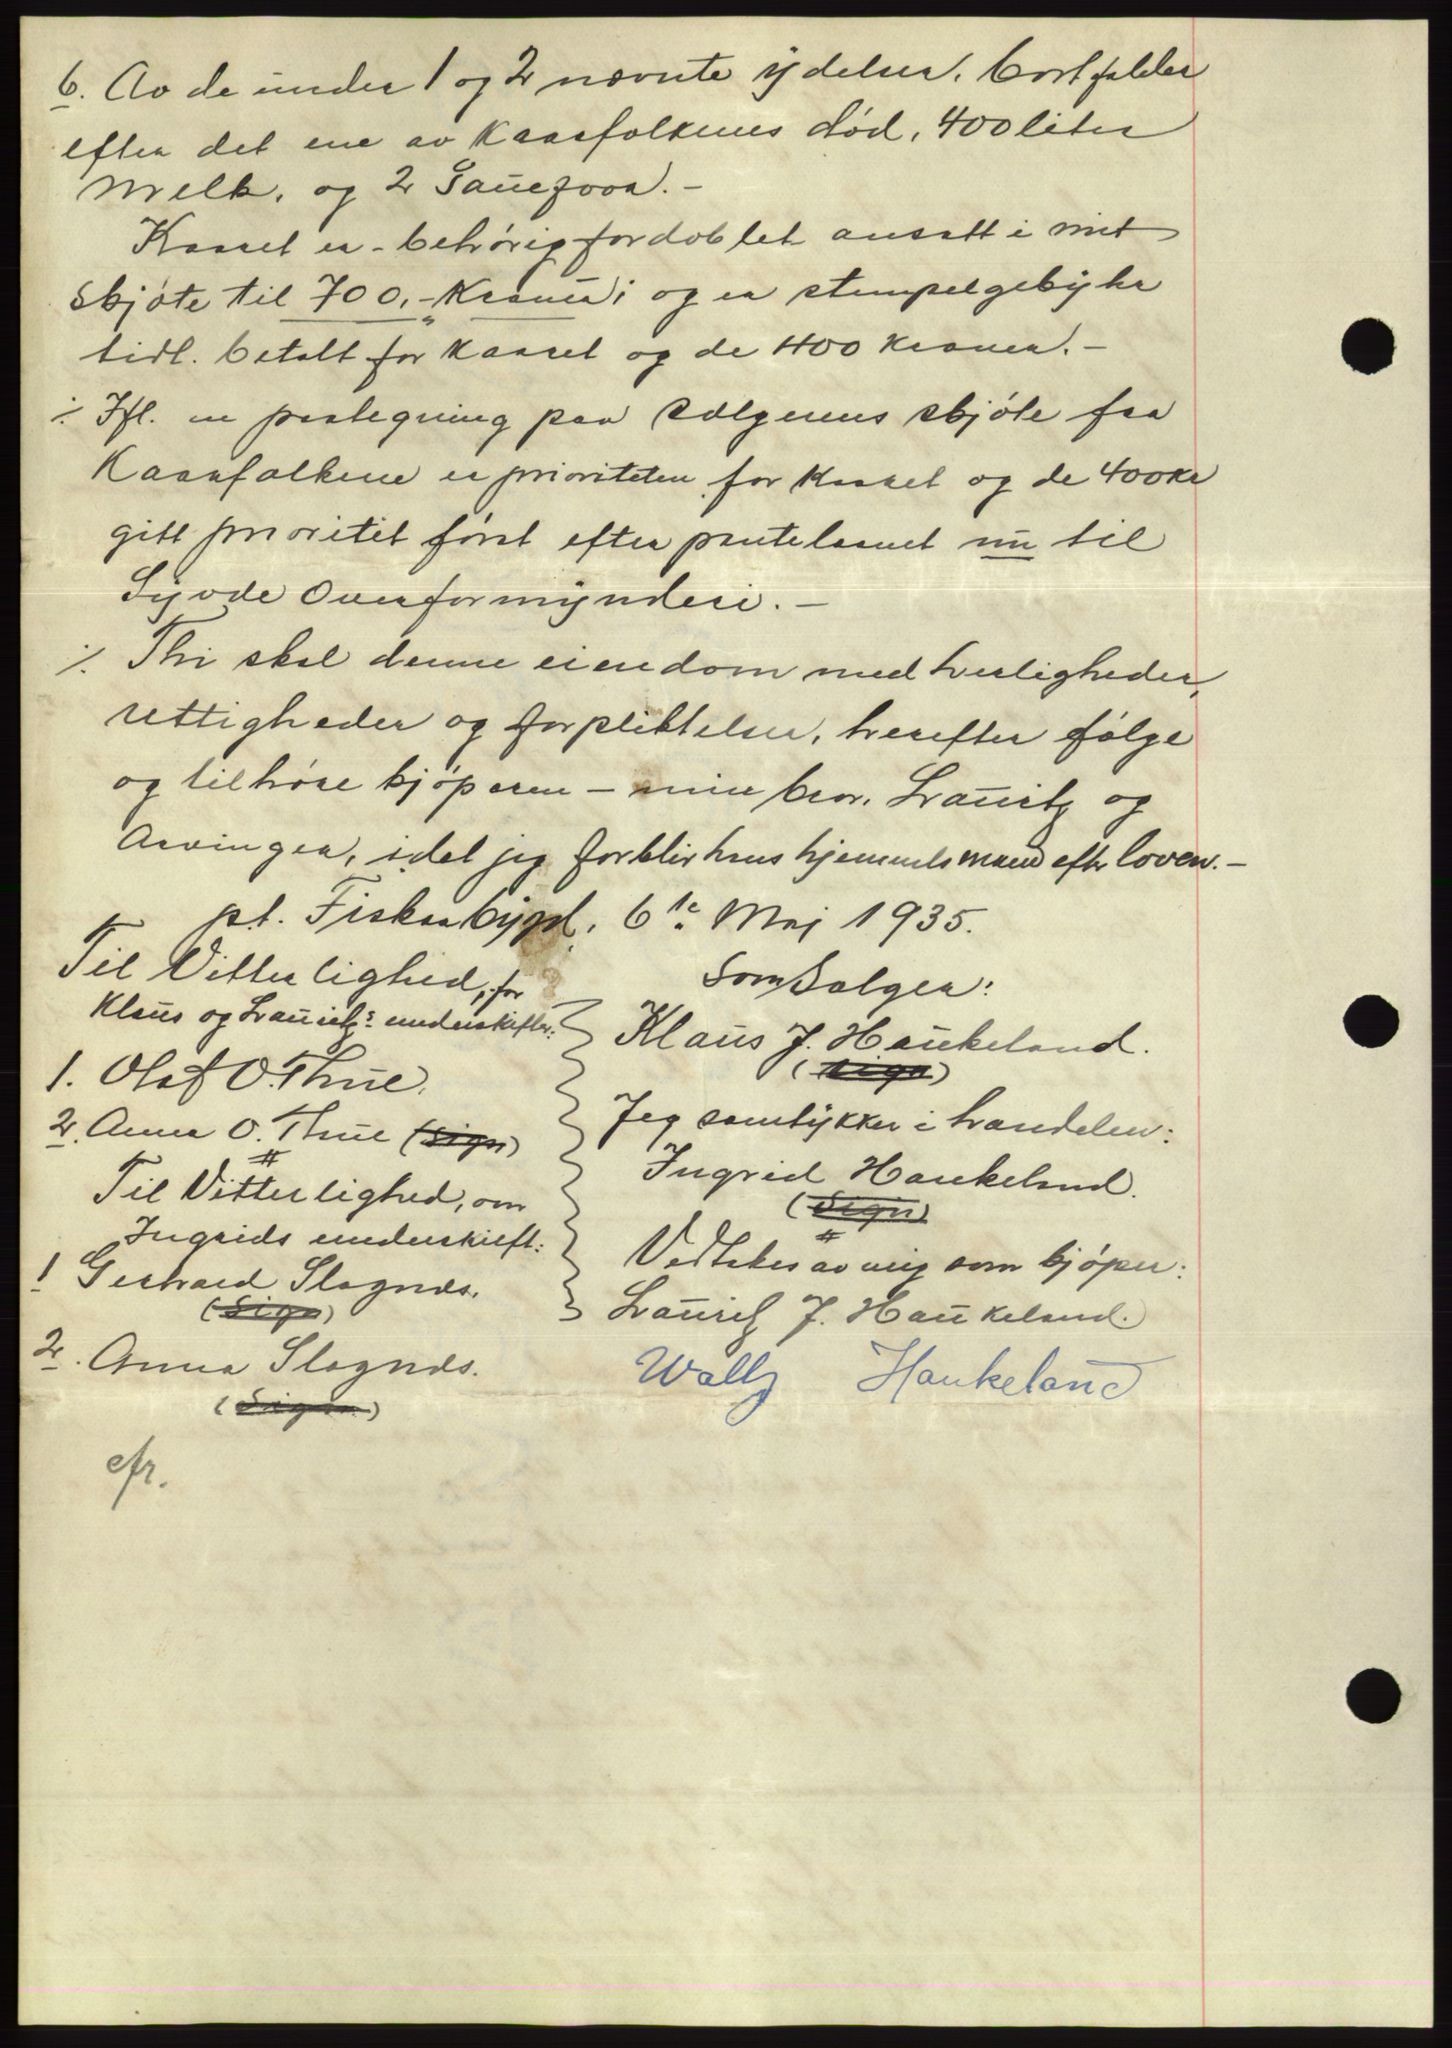 6. Av de under 1 og 2 nævnte ydelser, bortfalder
efter det ene av Kaarfolkenes død, 400 liter
Melk, og 2 Sauefoor. -
Kaaret er - behørig fordoblet ansatt i mit
skjøte til 700,- Kroner; og er stempelgebyhr
tidl. betalt for Kaaret og de 400 Kroner. -
⁒ Ifl. en paategning paa Sælgerens skjøte fra
Kaarfolkene er prioriteten for Kaaret og de 400 kr
gitt prioritet først efter pantelaanet nu til
Syvde Overformynderi. -
⁒ Thi skal denne eiendom med herligheder,
rettigheder og forpliktelser, herefter følge
og tilhøre kjøperen - min bror, Lauritz og
Arvinger, idet jeg forblir hans hjemmelsmand efter loven. -
pt. Fiskaabygd, 6te Maj 1935.
Til Vitterlighed, for
Klaus og Lauritz's underskifter:
1. Olaf O. Thue.
2. Anna O. Thue (Sign)
Til Vitterlighed, om
Ingrids underskrift:
1 Gerhard Slagnes.
(Sign)
2. Anna Slagnes.
(Sign)
Som Sælger:
Klaus J. Haukeland.
(Sign)
Jeg samtykker i handelen:
Ingrid Haukeland.
(Sign)
Vedtakes av mig som kjøper:
Lauritz J. Haukeland.
Wally Haukeland
cfr.